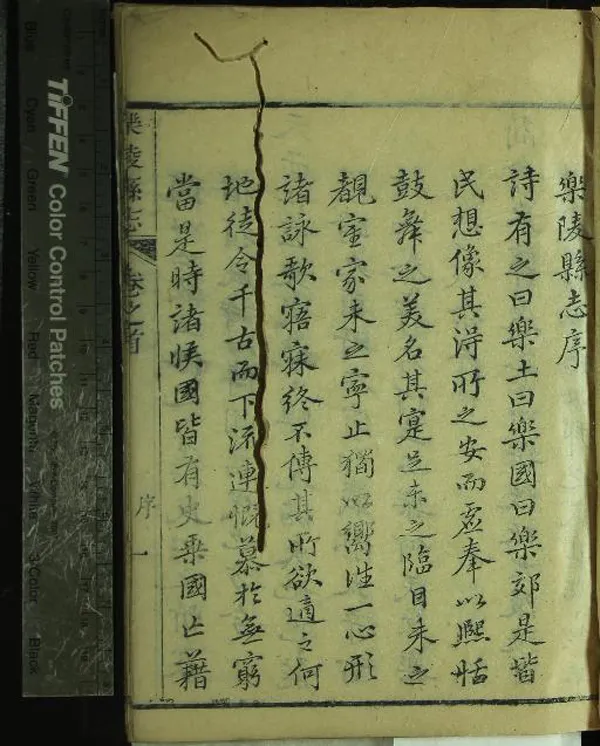 樂陵縣志序
詩有之曰樂土曰樂國曰樂郊是皆
民想像其淂所之安而虛奉以熈恬
鼓舞之美名其寔足未之臨目未之
覩室家未之寧止猶以嚮徃一心形
諸詠歌寤寐終不傳其所欲適之何
地徒令千古而下流連慨慕於無窮
當是時諸侯國皆有史乗國亡籍
樂陵縣志
卷之首
序
一
TIFFEN Color Control Patches
Blue
Cyan
Green
Yellow
Red
Magenta
White
3/Color
Black